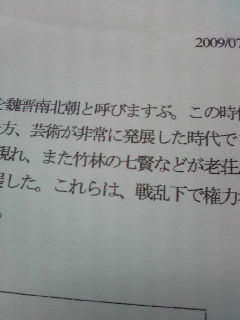 2009/07
を魏晋南北朝と呼びますぶ。この時
方、芸術が非常に発展した時代で
現れ、また竹林の七賢などが老荘
展した。これらは、戦乱下で権力
。